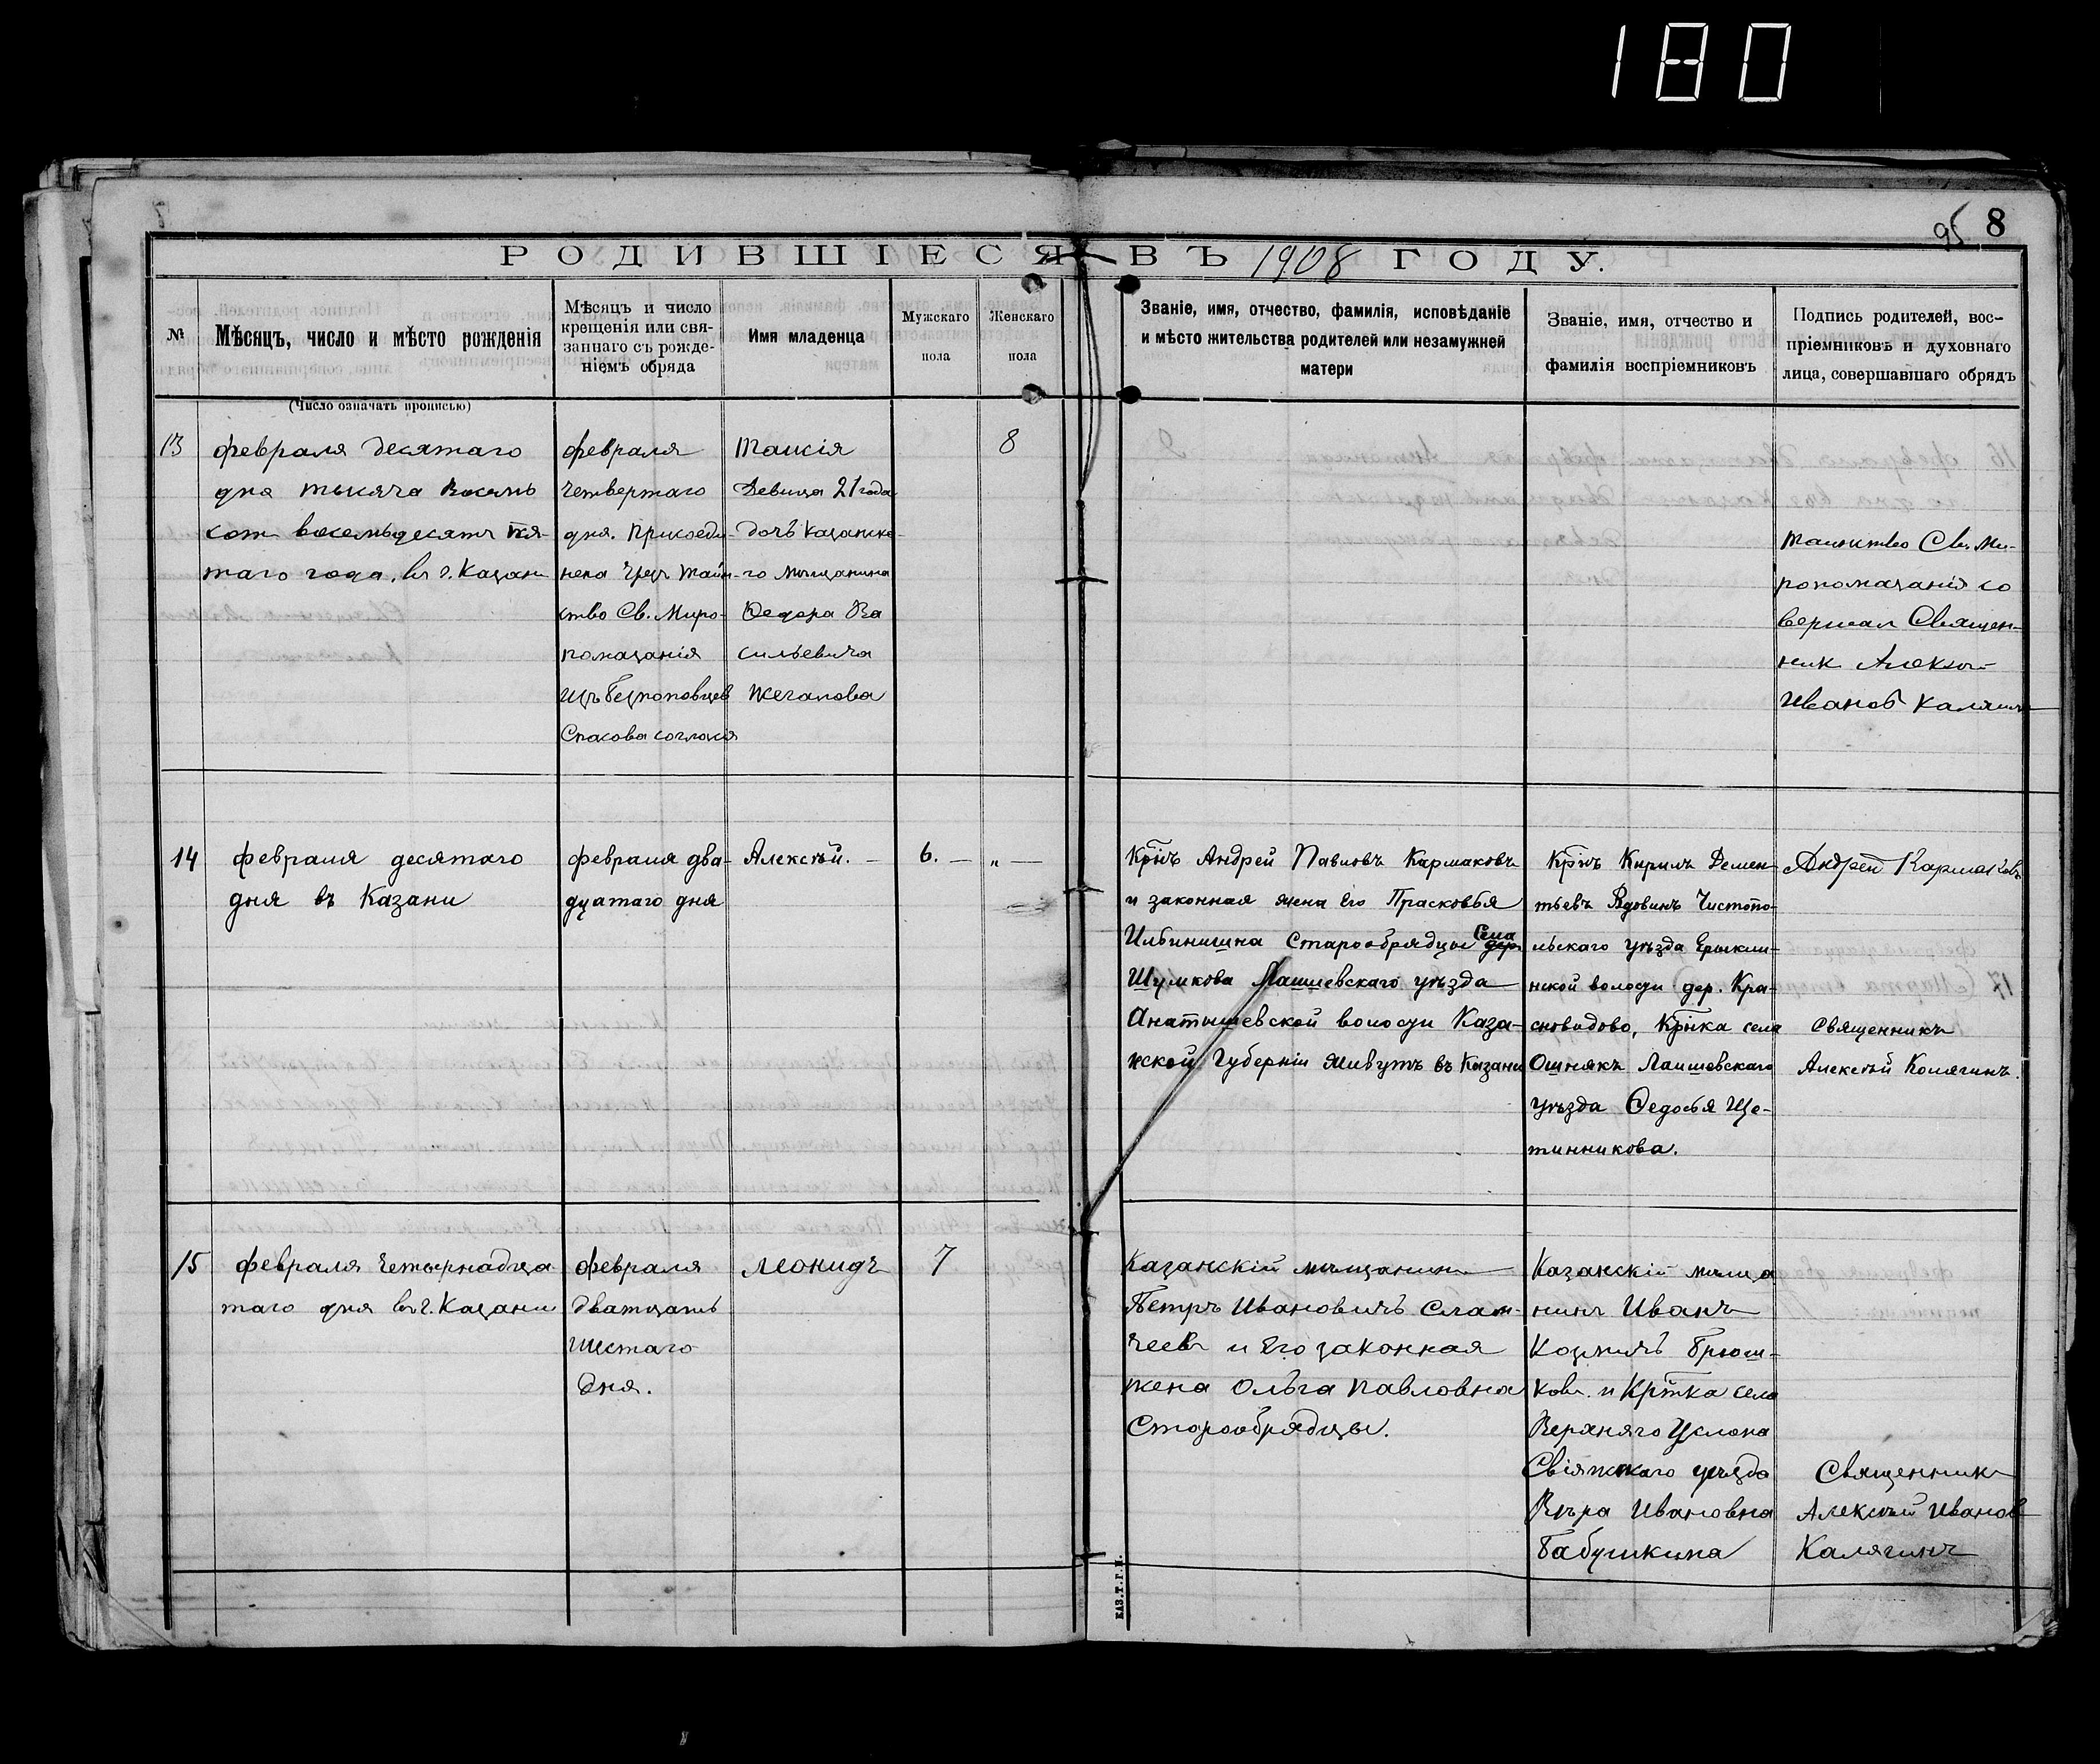 180
95 8
РОДИВШІЕСЯ ВЪ 1908 ГОДУ.
№
Мѣсяцъ, число и мѣсто рожденія
(Число означать прописью)
Мѣсяцъ и число
крещенія или свя-
заннаго съ рожде-
ніемъ обряда
Имя младенца
Мужскаго
пола
Женскаго
пола
Званіе, имя, отчество, фамилія, исповѣданіе
и мѣсто жительства родителей или незамужней
матери
Званіе, имя, отчество и
фамилія воспріемниковъ
Подпись родителей, вос-
пріемниковъ и духовнаго
лица, совершавшаго обрядъ
13
февраля десятаго
дня тысяча восемь
сот восемьдесятъ пя-
таго года, въ г. Казан
февраля
четвертаго
дня. Присоеди-
нена чрез таин-
ство Св. Миро-
помазанія
изъ безпоповцев
Спасова согласія
Таисія
Девица 21 года
дочь казанска-
го мещанина
Федора Ва
сильевича
Жегалова
8
Таинство Св. Ми-
ропомазанія со
вершал Священ-
ник Алексей
Иванов Калягин
14
февраля десятаго
дня въ Казани
февраля два-
дцатаго дня
Алексѣй. –
6. —
„ —
Кр̃нъ Андрей Павловъ Кармаковъ
и законная жена его Прасковья
Ильинишна Старообрядцы Села дер.
Шумкова Лаишевскаго уѣзда
Анатышевской волости Каза-
нской Губерніи живутъ въ Казани
Кр̃нъ Кирилъ Демен-
тьевъ Вдовинъ Чистопо-
льскаго уѣзда Ерыкли-
нской волости дер. Кра-
сновидово, Кр̃нка села
Ошнякъ Лаишевскаго
уѣзда Федосья Ще-
тинникова.
Андрей Кармаковъ
Священникъ
Алексѣй Калягинъ.
15
февраля четырнадца
таго дня въ г. Казани
февраля
дватцать
шестаго
дня.
Леонидъ
7
Казанскій мѣщанинъ
Петръ Ивановичъ Слат-
чеевъ и его законная
жена Ольга Павловна
Старообрядцы.
Казанскій мѣща
нинъ Иванъ
Козмичъ Брюш-
ковъ. и Кр̃тка села
Верхняго Услона
Свіяжскаго уѣзда
Вѣра Ивановна
Бабушкина
Священник
Алексѣй Иванов
Калягинъ
КАЗ. Т. Г. П.